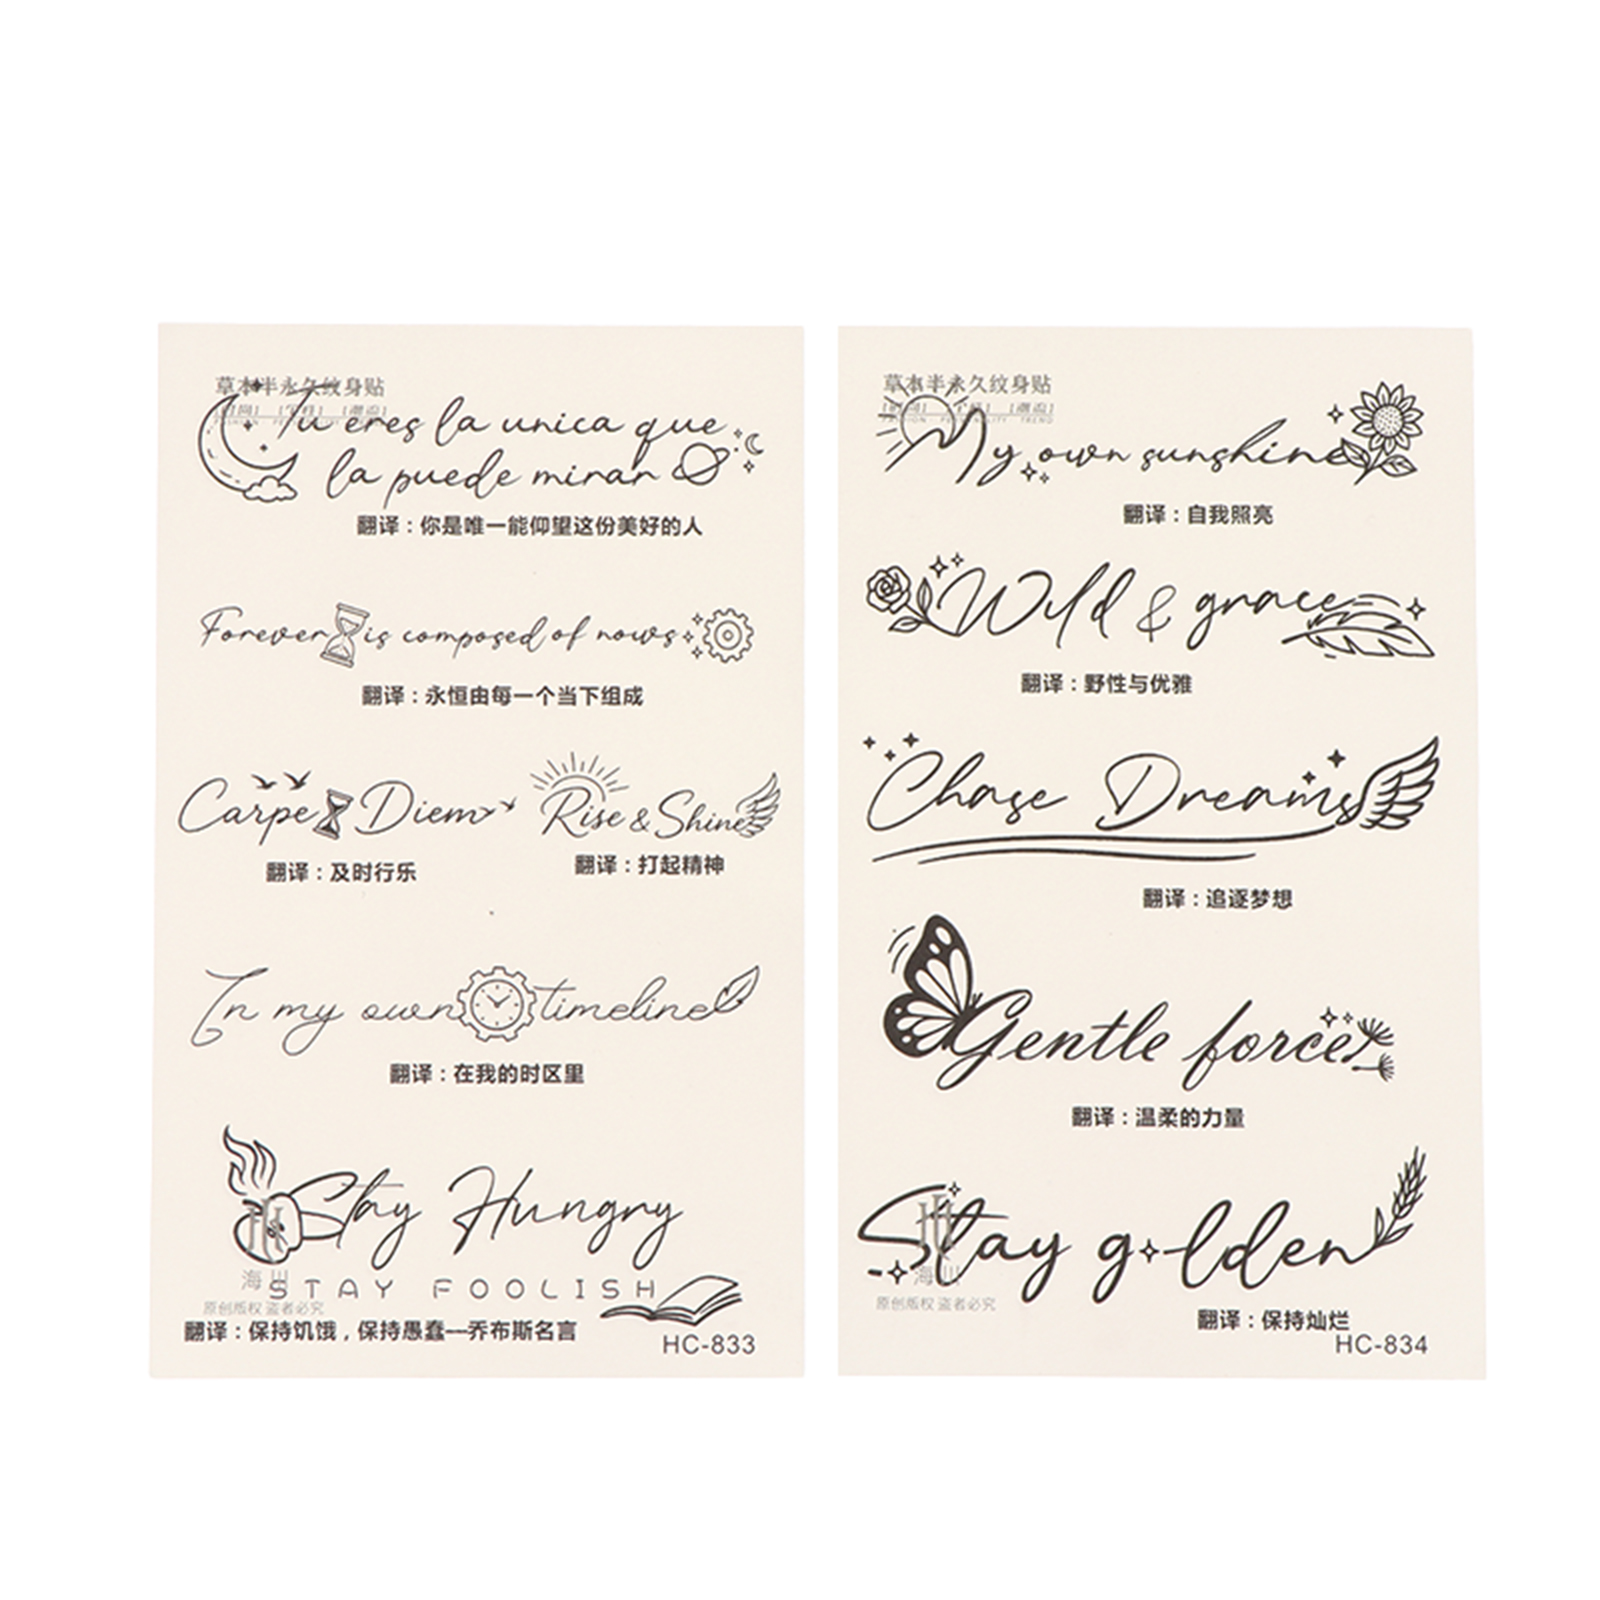 草本半永久纹身贴
Tu eres la unica que
la puede mirar
翻译：你是唯一能仰望这份美好的人
Forever is composed of nows
翻译：永恒由每一个当下组成
Carpe Diem
翻译：及时行乐
Rise & Shine
翻译：打起精神
In my own timeline
翻译：在我的时区里
Stay Hungry
STAY FOOLISH
海川
原创版权 盗者必究
翻译：保持饥饿，保持愚蠢—乔布斯名言
HC-833
草本半永久纹身贴
FASHION · PERSONALITY · TREND
My own sunshine
翻译：自我照亮
Wild & grace
翻译：野性与优雅
Chase Dreams
翻译：追逐梦想
Gentle force
翻译：温柔的力量
Stay golden
海川
原创版权 盗者必究
翻译：保持灿烂
HC-834